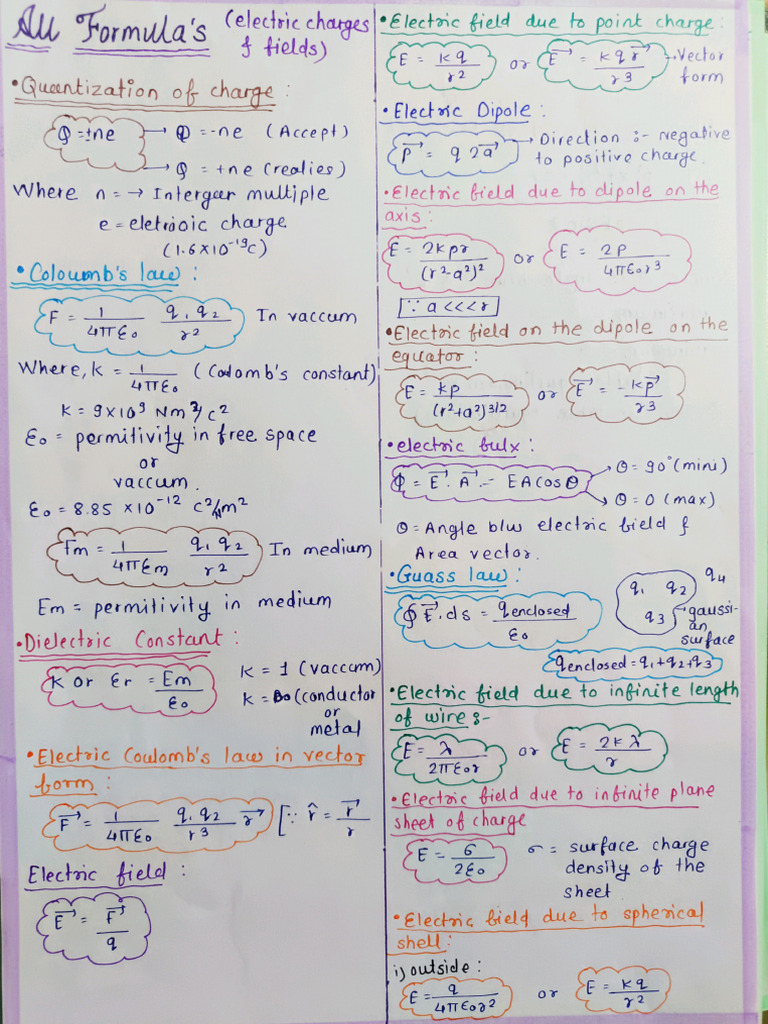 All Formula's (electric charges & fields)
• Quantization of charge :
Q = ±ne → Q = -ne (Accept)
→ Q = +ne (realies)
Where n = → Intergear multiple
e = eletrooic charge
(1.6×10⁻¹⁹C)
• Coloumb's law :
F = 1/4πε₀ q₁q₂/r² In vaccum
Where, k = 1/4πε₀ (Coulomb's constant)
K = 9×10⁹ Nm²/c²
ε₀ = permitivity in free space
or
vaccum.
ε₀ = 8.85 ×10⁻¹² c²/Nm²
Fm = 1/4πεm q₁q₂/r² In medium
Em = permitivity in medium
• Dielectric Constant :
K or εr = Em/ε₀ K = 1 (vaccum)
K = ∞ (conductor
or
metal
• Electric Coulomb's law in vector
form :
F⃗ = 1/4πε₀ q₁q₂/r³ r⃗ [∵ r̂ = r⃗/r
Electric field :
E⃗ = F⃗/q
• Electric field due to point charge :
E = kq/r² or E⃗ = kqr⃗/r³ → Vector
form
• Electric Dipole :
P⃗ = q 2a⃗ → Direction :- negative
to positive charge.
• Electric field due to dipole on the
axis :
E = 2kpr/(r²-a²)² or E = 2P/4πε₀r³
∵ a<<<r
• Electric field on the dipole on the
equator :
E = kp/(r²+a²)3/2 or E⃗ = -kp⃗/r³
• electric fulx :
ϕ = E⃗. A⃗ = EAcosθ → θ = 90° (mini)
→ θ = 0 (max)
θ = Angle b/w electric field &
Area vector.
• Guass law :
∮ E⃗.ds = qenclosed/ε₀
q₁ q₂ q₄
q₃ → gaussi-
an
surface
qenclosed = q₁+q₂+q₃
• Electric field due to infinite length
of wire :-
E = λ/2πε₀r or E = 2kλ/r
• Electric field due to infinite plane
sheet of charge
E = σ/2ε₀ σ = surface charge
density of the
sheet
• Electric field due to spherical
shell :
i) outside :
E = q/4πε₀r² or E = kq/r²